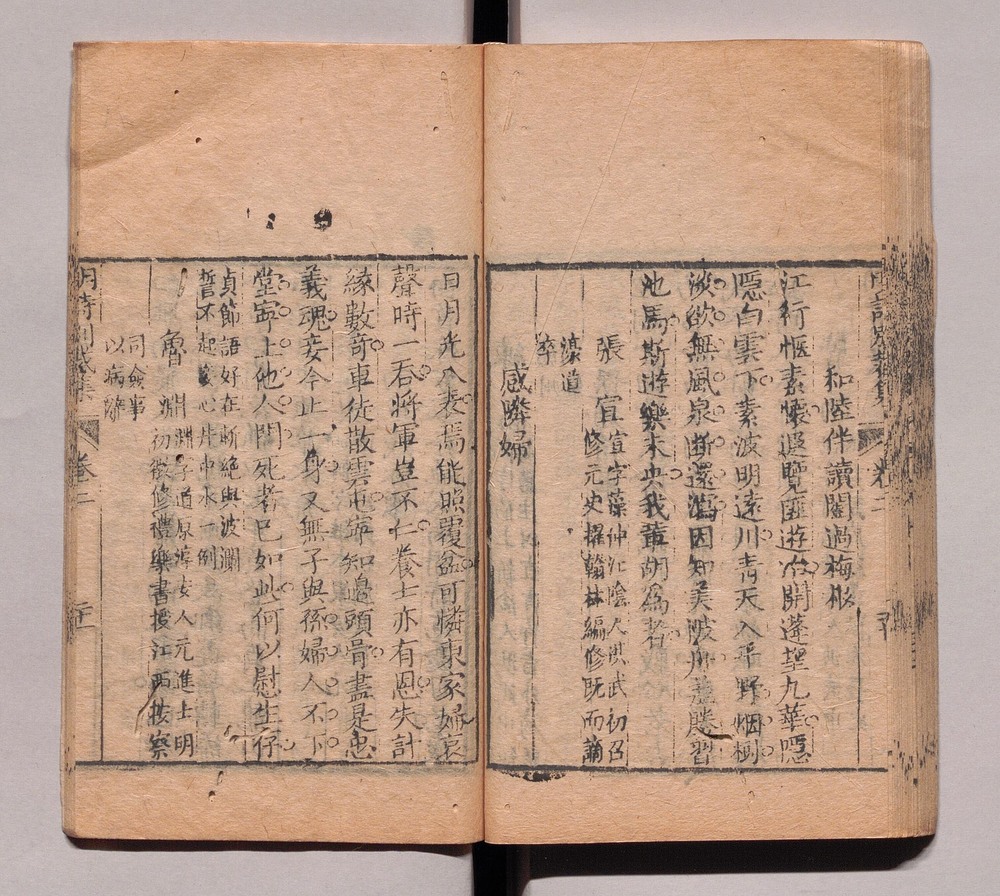 和陸伴讀閣過梅根
江行愜素懷遐覽匪遊冶開蓬望九華隱
隱白雲下素波明遠川青天入平野烟樹
淡欲無風泉斷還瀉因知美陂舟差勝習
池馬斯遊樂未央我輩胡為者
張宣
宣字藻仲江陰人洪武初召
修元史擢翰林編修既而謫
濠道
卒
感鄰婦
日月光八表焉能照覆盆可憐東家婦哀
聲時一吞將軍豈不仁養士亦有恩失計
緣數奇車徒散雲屯寧知邊頭骨盡是忠
義魂妾今止一身又無子與孫婦人不下
堂寧上他人門死者已如此何以慰生存
貞節語好在斬絕與波瀾
誓不起妾心井中水一例
魯淵
淵字道原淳安人元進士明
初徵修禮樂書授江西按察
司僉事
以病辭
明詩別裁集
卷二